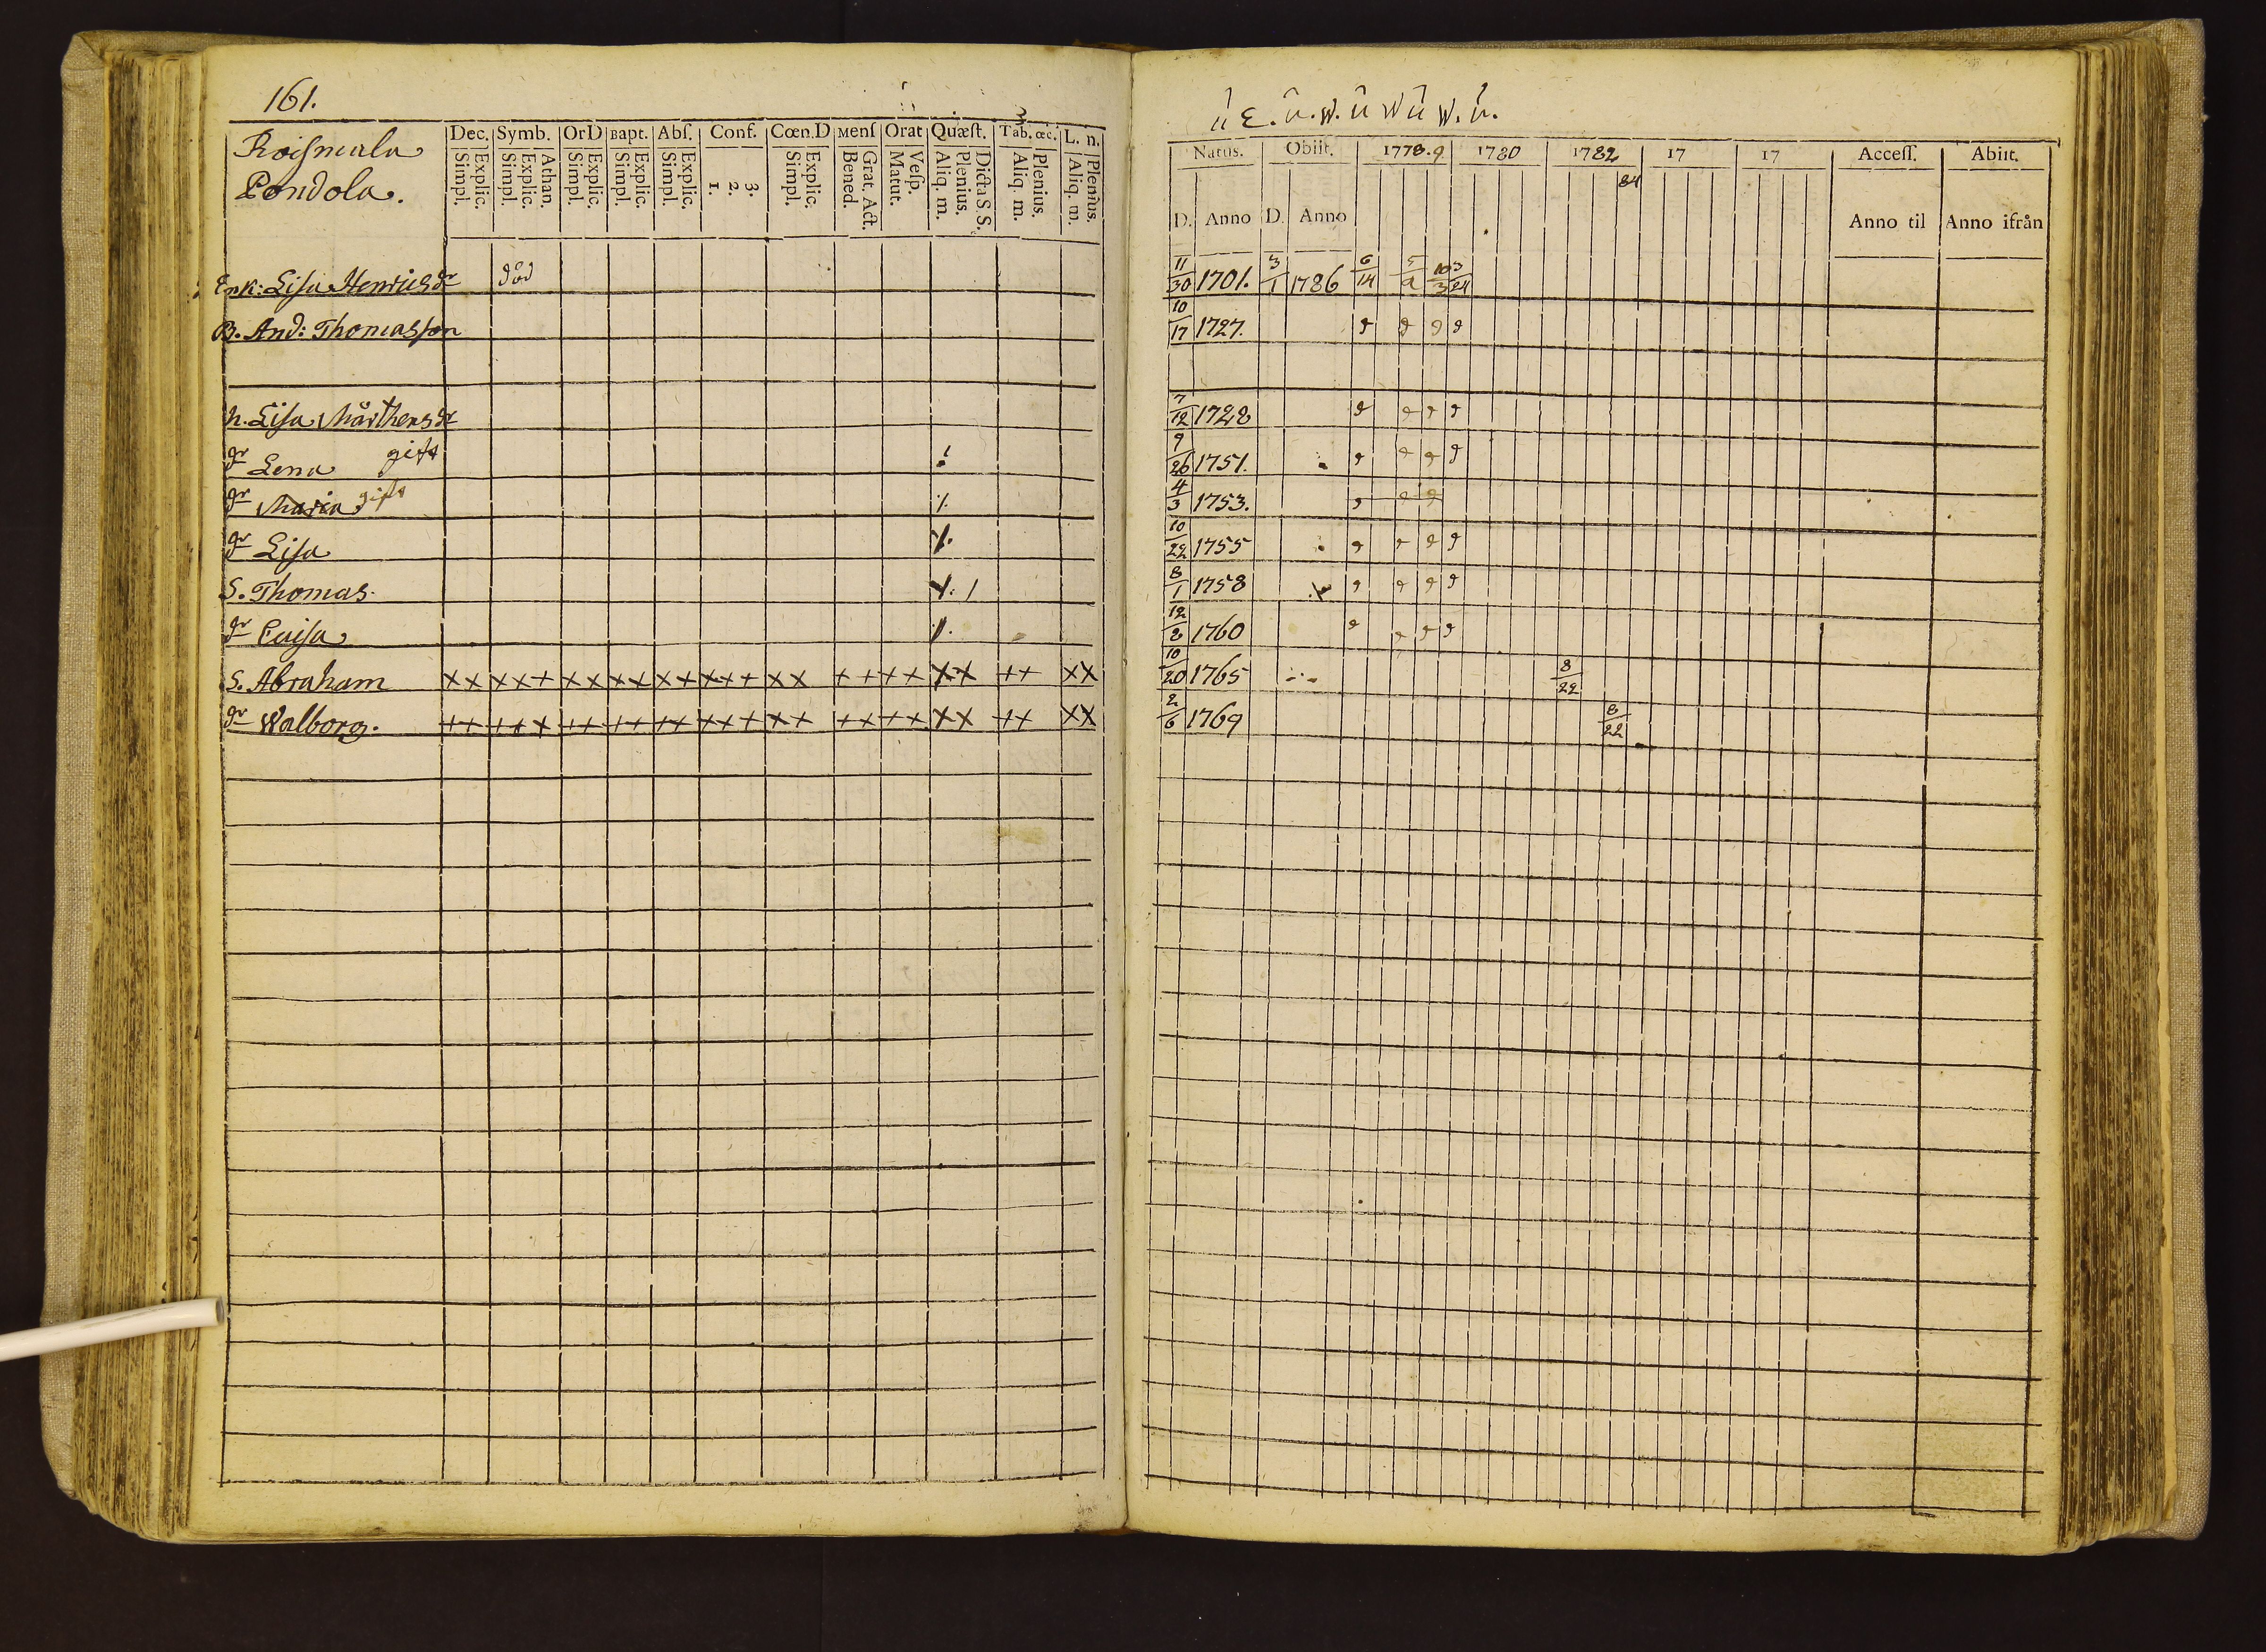 161.
Roismala
Pondola.
Dec. Symb. OrD Bapt. Abſ. Conf. Cœn.D Menſ Orat Quæſt. Tab.œc. L. n.
Simpl. Explic. Simpl. Explic. Athan. Simpl. Explic. Simpl. Explic. Simpl. Explic. 1. 2. 3. Simpl. Explic. Bened. Grat. Act. Matut. Veſp. Aliq. m. Plenius. Dicta S.S. Aliq. m. Plenius. Aliq. m. Plenius.
Enk: Lisa Henrichsdr död
B. And: Thomasson
h. Lisa Mårthensdr
dr Lena gift
dr Maria gift
dr Lisa
S. Thomas.
dr Caisa
S. Abraham ×× ××+ ×× ×× ×+ ××+ ×× ++ ++ ×× ++ ××
dr Walborg. ++ ++× ++ ++ ++ ××+ ×+ ++ ++ ×× ++ ××
Natus. Obiit. 1778.9 1780 1782 17 17 Acceſſ. Abiit.
84
D. Anno D. Anno Anno til Anno ifrån
11/30 1701. 3/1 1786 6/14 5/2 10/3 3/24
10/17 1727.
7/12 1728
9/26 1751.
4/3 1753.
10/22 1755
8/1 1758
12/2 1760
10/20 1765 8/22
2/6 1769 8/22